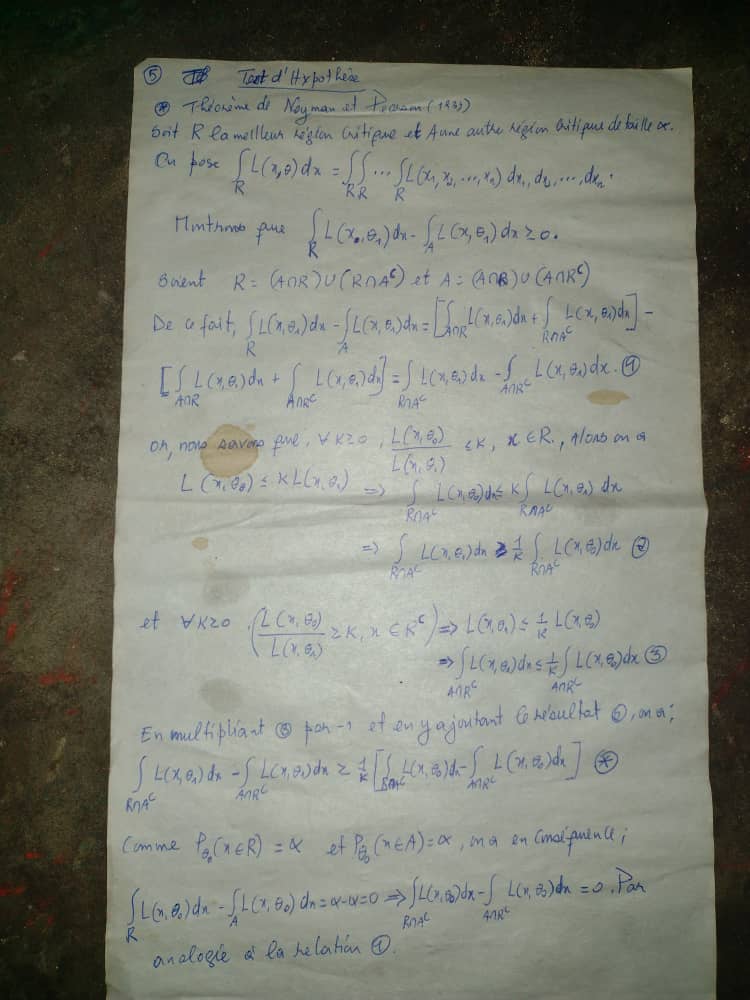 ⑤ Test d'Hypothèse
⊛ Théorème de Neyman et Pearson (1933)
Soit R la meilleur région critique et A une autre région critique de taille α.
On pose ∫_R L(x,θ)dx = ∫_R ∫_R ⋯ ∫_R L(x₁, x₂, ⋯, xₙ) dx₁, dx₂, ⋯, dxₙ.
Montrons que ∫_R L(x,θ₁)dx - ∫_A L(x,θ₁)dx ≥ 0.
Soient R = (A∩R)∪(R∩A^C) et A = (A∩R)∪(A∩R^C)
De ce fait, ∫_R L(x,θ₁)dx - ∫_A L(x,θ₁)dx = [∫_{A∩R} L(x,θ₁)dx + ∫_{R∩A^C} L(x,θ₁)dx] -
[∫_{A∩R} L(x,θ₁)dx + ∫_{A∩R^C} L(x,θ₁)dx] = ∫_{R∩A^C} L(x,θ₁)dx - ∫_{A∩R^C} L(x,θ₁)dx. ①
or, nous savons que, ∀K≥0, L(x,θ₀)/L(x,θ₁) ≤ K, x ∈ R., Alors on a
L(x,θ₀) ≤ K L(x,θ₁) ⇒ ∫_{R∩A^C} L(x,θ₀)dx ≤ K ∫_{R∩A^C} L(x,θ₁) dx
⇒ ∫_{R∩A^C} L(x,θ₁)dx ≥ 1/K ∫_{R∩A^C} L(x,θ₀)dx ②
et ∀K≥0, (L(x,θ₀)/L(x,θ₁) ≥ K, x ∈ R^C) ⇒ L(x,θ₁) ≤ 1/K L(x,θ₀)
⇒ ∫_{A∩R^C} L(x,θ₁)dx ≤ 1/K ∫_{A∩R^C} L(x,θ₀)dx ③
En multipliant ③ par -1 et en y ajoutant le résultat ②, on a;
∫_{R∩A^C} L(x,θ₁)dx - ∫_{A∩R^C} L(x,θ₁)dx ≥ 1/K [∫_{R∩A^C} L(x,θ₀)dx - ∫_{A∩R^C} L(x,θ₀)dx] ⊛
Comme P_{θ₀}(x∈R) = α et P_{θ₀}(x∈A) = α, on a en conséquence;
∫_R L(x,θ₀)dx - ∫_A L(x,θ₀)dx = α-α = 0 ⇒ ∫_{R∩A^C} L(x,θ₀)dx - ∫_{A∩R^C} L(x,θ₀)dx = 0. Par
analogie à la relation ①.